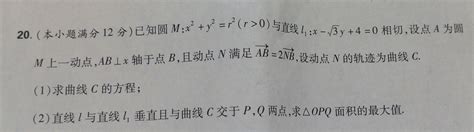 20. (本小题满分 12 分) 已知圆 M:x²+y²=r²(r>0) 与直线 l₁:x-√3y+4=0 相切,设点 A 为圆
M 上一动点,AB⊥x 轴于点 B,且动点 N 满足 \overrightarrow{AB}=2\overrightarrow{NB},设动点 N 的轨迹为曲线 C.
(1)求曲线 C 的方程;
(2)直线 l 与直线 l₁ 垂直且与曲线 C 交于 P,Q 两点,求△OPQ 面积的最大值.